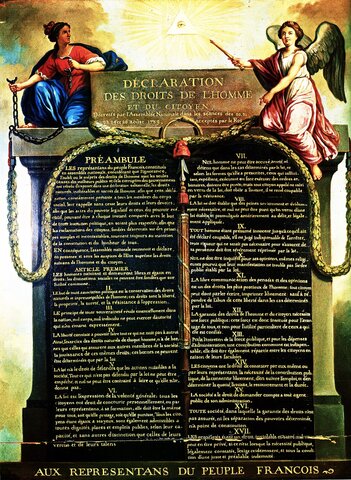 DÉCLARATION
DES DROITS DE L'HOMME
ET DU CITOYEN,
Décretés par l'Assemblée Nationale dans les séances des 20, 21,
23, 24 et 26 août 1789, acceptés par le Roi
PRÉAMBULE
LES représentans du peuple François constitués
en assemblée nationale, considérant que l'ignorance,
l'oubli ou le mépris des droits de l'homme sont les seules
causes des malheurs publics et de la corruption des gouvernemens
ont résolu d'exposer dans une déclaration solemnelle, les droits
naturels, inaliénables et sacrés de l'homme; afin que cette décla-
ration, constamment présente à tous les membres du corps
social, leur rappelle sans cesse leurs droits et leurs devoirs;
afin que les actes du pouvoir législatif et ceux du pouvoir exé-
cutif, pouvant être à chaque instant comparés avec le but
de toute institution politique, en soient plus respectés; afin que
les réclamations des citoyens, fondées désormais sur des princi-
pes simples et incontestables, tournent toujours au maintien
de la constitution et du bonheur de tous.
EN conséquence, l'assemblée nationale reconnoit et déclare,
en présence et sous les auspices de l'Être suprême les droits
suivans de l'homme et du citoyen.
ARTICLE PREMIER.
LES hommes naissent et demeurent libres et égaux en
droits, les distinctions sociales ne peuvent être fondées que sur
l'utilité commune.
II.
LE but de toute association politique est la conservation des droits
naturels et imprescriptibles de l'homme; ces droits sont la liberté,
la propriété, la sureté, et la résistance à l'oppression.
III.
LE principe de toute souveraineté réside essentiellement dans
la nation, nul corps, nul individu ne peut exercer d'autorité
qui n'en émane expressement.
IV.
LA liberté consiste à pouvoir faire tout ce qui ne nuit pas à autrui
Ainsi, l'exercice des droits naturels de chaque homme, n'a de bor-
nes que celles qui assurent aux autres membres de la société
la jouissance de ces mêmes droits; ces bornes ne peuvent
être déterminées que par la loi
V.
LA loi n'a le droit de défendre que les actions nuisibles à la
société. Tout ce qui n'est pas défendu par la loi ne peut être
empêché, et nul ne peut être contraint à faire ce qu'elle n'or-
donne pas.
VI.
LA loi est l'expression de la volonté générale; tous les
citoyens ont droit de concourir personnellement, ou par
leurs représentans, à sa formation; elle doit être la même
pour tous, soit qu'elle protège, soit qu'elle punisse. Tous les cito-
yens étant égaux à ses yeux, sont également admissibles à
toutes dignités, places et emplois publics, selon leur ca-
pacité, et sans autres distinction que celles de leurs
vertus et de leurs talens
VII.
NUL homme ne peut être accusé, arrêté ni
détenu que dans les cas déterminés par la loi, et
selon les formes qu'elle a prescrites, ceux qui solli-
citent, expédient, exécutent ou font exécuter des ordres ar-
bitraires, doivent être punis; mais tout citoyen appelé ou saisi
en vertu de la loi, doit obéir à l'instant, il se rend coupable
par la résistance.
VIII.
LA loi ne doit établir que des peines strictement et évidem-
ment nécessaires, et nul ne peut être puni qu'en vertu d'une
loi établie et promulguée antérieurement au délit, et légale-
ment appliquée.
IX.
TOUT homme étant présumé innocent jusqu'à ce qu'il ait
été déclaré coupable, s'il est jugé indispensable de l'arrêter,
toute rigueur qui ne seroit pas nécessaire pour s'assurer de
sa personne doit être sévèrement réprimée par la loi.
X.
NUL ne doit être inquiété pour ses opinions, mêmes religi-
euses pourvu que leur manifestation ne trouble pas l'ordre
public établi par la loi.
XI.
LA libre communication des pensées et des opinions est
un des droits les plus précieux de l'homme; tout citoyen
peut donc parler, écrire, imprimer librement, sauf à ré-
pondre de l'abus de cette liberté dans les cas déterminés
par la loi.
XII.
LA garantie des droits de l'homme et du citoyen nécessite
une force publique; cette force est donc instituée pour l'avan-
tage de tous, et non pour l'utilité particulière de ceux à qui
elle est confiée.
XIII.
POUR l'entretien de la force publique, et pour les dépenses
d'administration, une contribution commune est indispen-
sable; elle doit être également répartie entre les citoyens en
raison de leurs facultés.
XIV.
LES citoyens ont le droit de constater par eux même ou
par leurs représentans, la nécessité de la contribution pub-
lique, de la consentir librement, d'en suivre l'emploi, et d'en
déterminer la quotité, l'assiette, le recouvrement et la durée.
XV.
LA société a le droit de demander compte à tout agent
public de son administration.
XVI.
TOUTE société, dans laquelle la garantie des droits n'est
pas assurée, ni la séparation des pouvoirs déterminée,
n'a point de constitution.
XVII.
LES propriétés étant un droit inviolable et sacré, nul ne
peut en être privé, si ce n'est lorsque la nécessité publique,
légalement constatée, l'exige évidemment, et sous la condi-
tion d'une juste et préalable indemnité.
AUX REPRESENTANS DU PEUPLE FRANCOIS